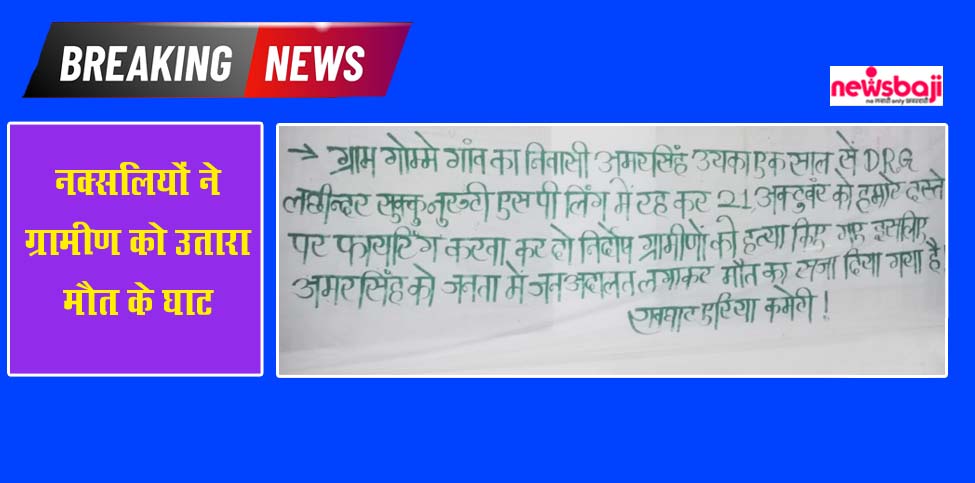 BREAKING NEWS
newsbaji
no गलती only खबरदारी
नक्सलियों ने
ग्रामीण को उतारा
मौत के घाट
→ ग्राम गोम्मे गांव का निवासी अमरसिंह उयका एक साल से DRG
लछीन्दर सुक्कु नुरूटी एस पी लिंग में रह कर 21, अक्टुबर को हमारे दस्ते
पर फायरिंग करवा कर दो निर्दोष ग्रामीणों की हत्या किए गए इसलिए
अमरसिंह को जनता में जन अदालत लगाकर मौत का सजा दिया गया है।
रावघाट एरिया कमेटी !